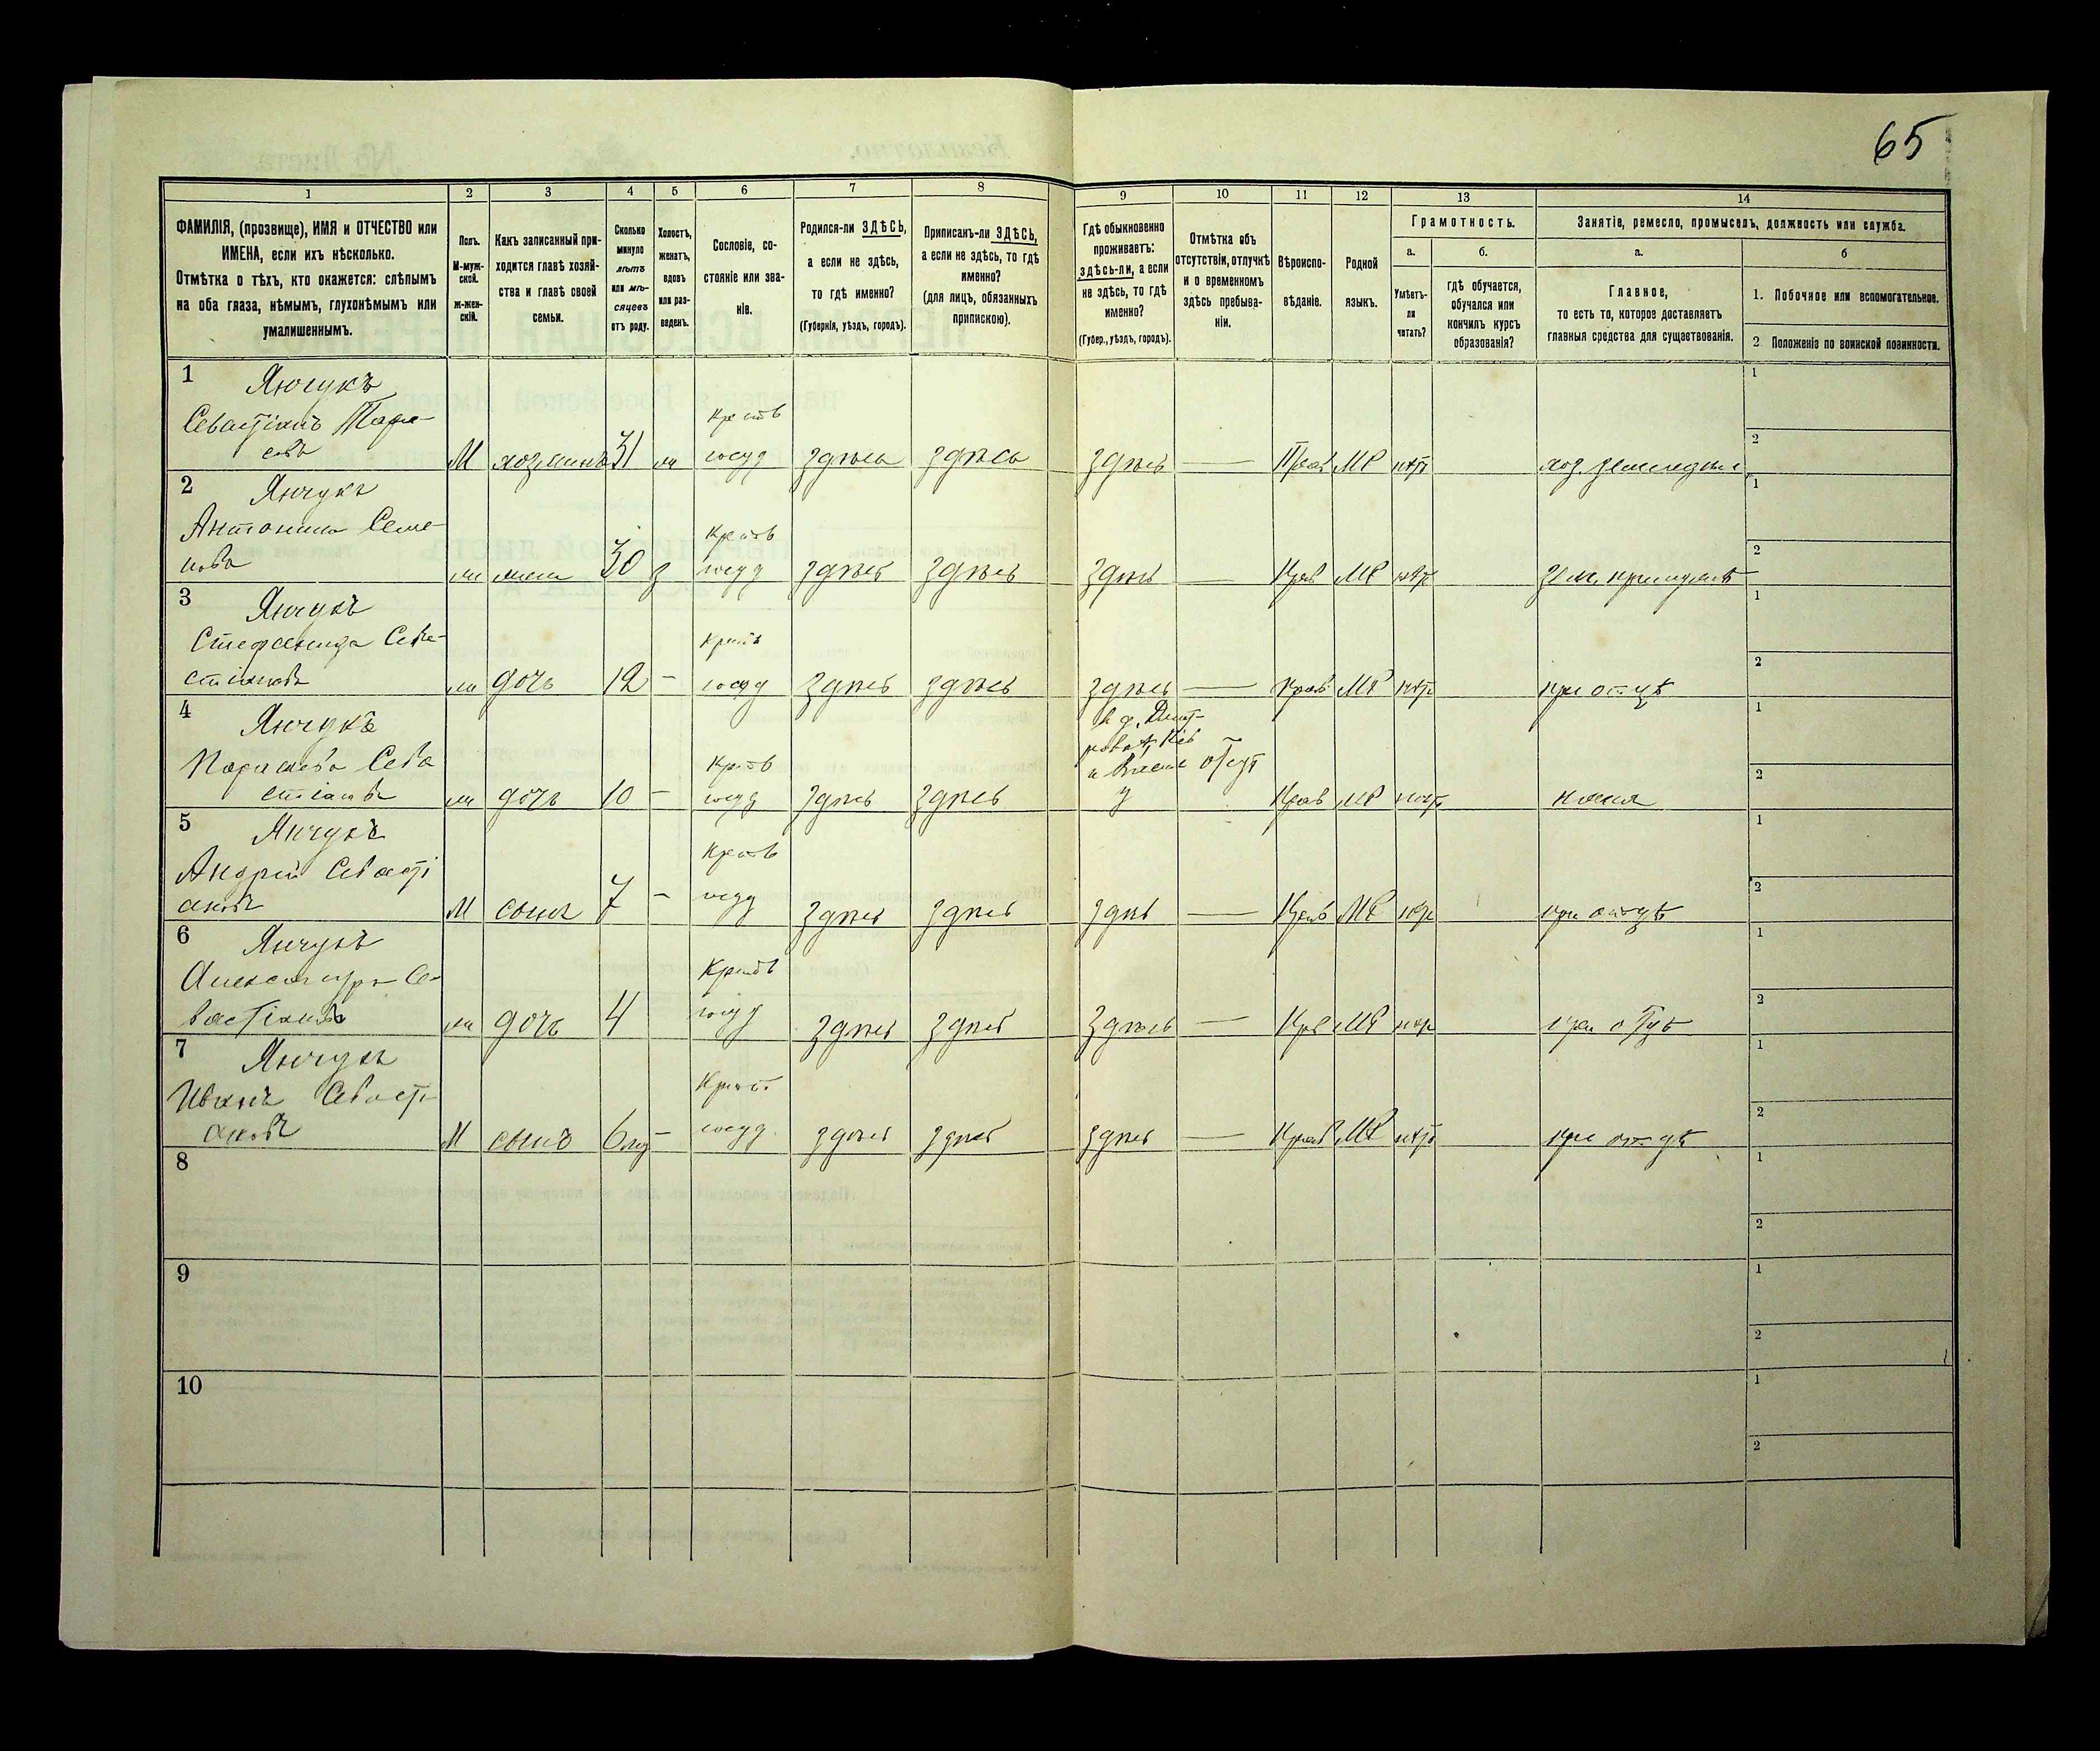 65
1 2 3 4 5 6 7 8 9 10 11 12 13 14
ФАМИЛІЯ, (прозвище), ИМЯ и ОТЧЕСТВО или
ИМЕНА, если ихъ нѣсколько.
Отмѣтка о тѣхъ, кто окажется: слѣпымъ
на оба глаза, нѣмымъ, глухонѣмымъ или
умалишеннымъ.
Полъ.
М-муж-
ской.
ж-жен-
скій.
Какъ записанный при-
ходится главѣ хозяй-
ства и главѣ своей
семьи.
Сколько
минуло
лѣтъ
или мѣ-
сяцевъ
отъ роду.
Холостъ,
женатъ,
вдовъ
или раз-
веденъ.
Сословіе, со-
стояніе или зва-
ніе.
Родился-ли ЗДѢСЬ,
а если не здѣсь,
то гдѣ именно?
(Губернія, уѣздъ, городъ).
Приписанъ-ли ЗДѢСЬ,
а если не здѣсь, то гдѣ
именно?
(для лицъ, обязанныхъ
припискою).
Гдѣ обыкновенно
проживаетъ:
здѣсь-ли, а если
не здѣсь, то гдѣ
именно?
(Губер., уѣздъ, городъ).
Отмѣтка объ
отсутствіи, отлучкѣ
и о временномъ
здѣсь пребыва-
ніи.
Вѣроиспо-
вѣданіе.
Родной
языкъ.
Грамотность.
а.
Умѣетъ-
ли
читать?
б.
гдѣ обучается,
обучался или
кончилъ курсъ
образованія?
Занятіе, ремесло, промыселъ, должность или служба.
а.
Главное,
то есть то, которое доставляетъ
главныя средства для существованія.
б
1. Побочное или вспомогательное.
2 Положеніе по воинской повинности.
1 Янчукъ
Севастіанъ Тара-
совъ
М хозяинъ 31 крест госуд здѣсь здѣсь здѣсь — Прав МР нѣт хоз.
2 Янчукъ
Антонина Семе-
нова
жена 30 з крест госуд здѣсь здѣсь здѣсь — Прав МР нѣт
3 Янчукъ
Стефанида Сева-
стіанова
дочь 12 — крест госуд здѣсь здѣсь здѣсь — Прав МР нѣт при отцѣ
4 Янчукъ
Параскева Сева
стіанова
дочь 10 — крест госуд здѣсь здѣсь отсут Прав МР нѣт няня
5 Янчукъ
Андрей Севасті
ановъ
М сынъ 7 — крест госуд здѣсь здѣсь здѣсь — Прав МР нѣт при отцѣ
6 Янчукъ
Александра Се-
вастіанова
дочь 4 крест госуд здѣсь здѣсь здѣсь — Прав МР нѣт при отцѣ
7 Янчукъ
Иванъ Севасті-
ановъ
М сынъ 6 — крест госуд здѣсь здѣсь здѣсь — Прав МР нѣт при отцѣ
8
9
10